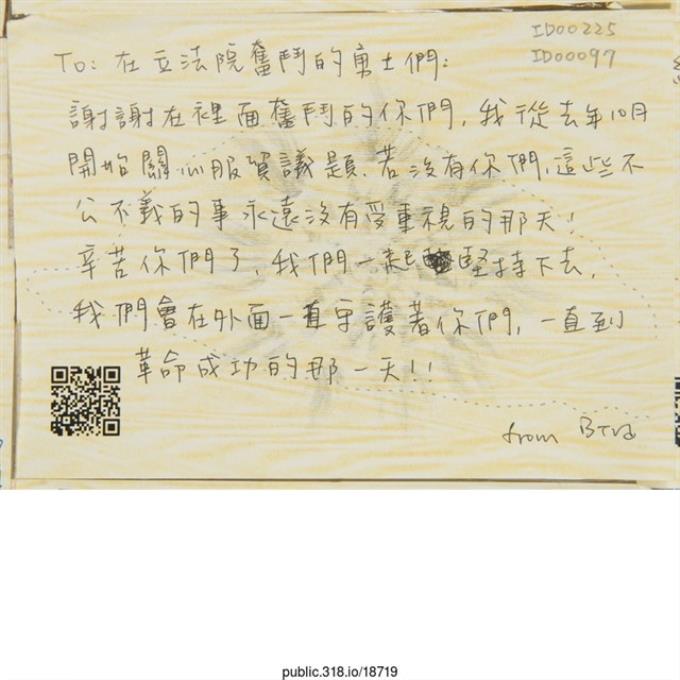 ID00225
ID00097
To: 在立法院奮鬥的勇士們:
謝謝在裡面奮鬥的你們, 我從去年10月
開始關心服貿議題. 若沒有你們, 這些不
公不義的事永遠沒有受重視的那天!
辛苦你們了, 我們一起堅持下去,
我們會在外面一直守護著你們, 一直到
革命成功的那一天!!
from
public.318.io/18719